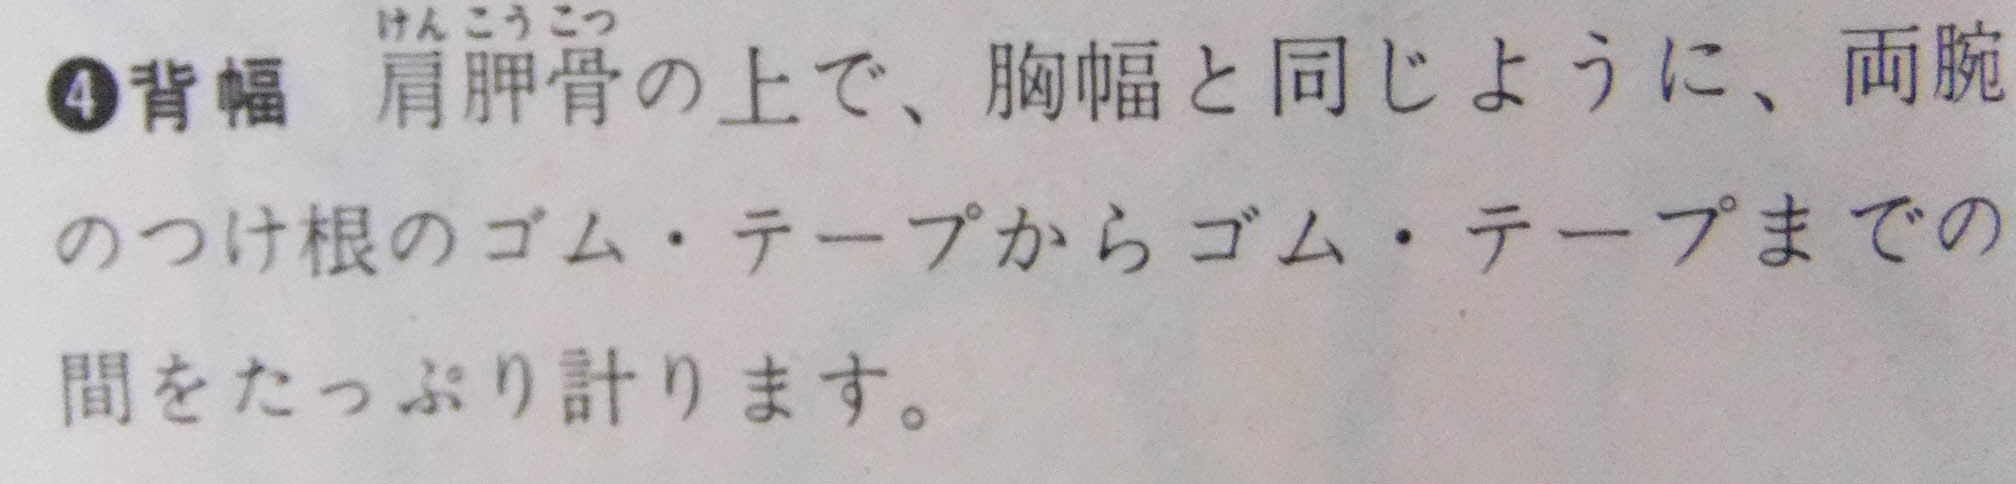 ❹背幅　肩胛骨の上で、胸幅と同じように、両腕
のつけ根のゴム・テープからゴム・テープまでの
間をたっぷり計ります。
けんこうこつ